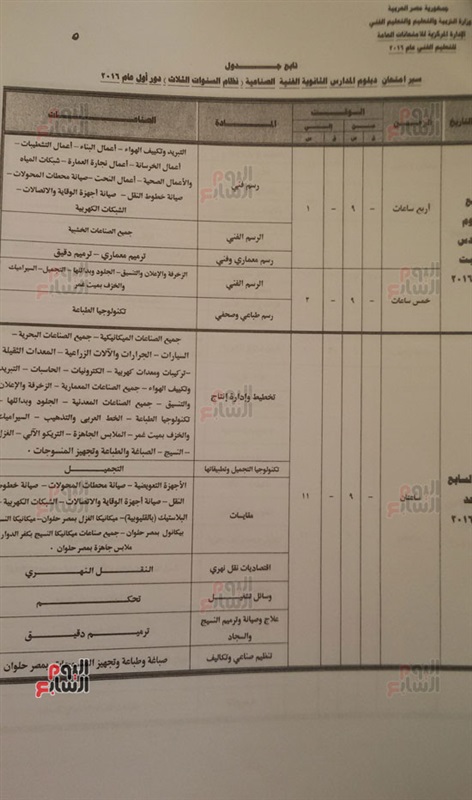 جمهورية مصر العربية
وزارة التربية والتعليم والتعليم الفني
الإدارة المركزية للامتحانات العامة
للتعليم الفني ٢٠١٦
٥
تابع جدول
سير امتحان دبلوم المدارس الثانوية الفنية الصناعية (نظام السنوات الثلاث) دور أول عام ٢٠١٦
التاريخ
الزمن
التوقيت
من
إلى
ق
س
ق
س
المادة
الصناعات
أربع ساعات
-
٩
-
١
رسم فني
التبريد وتكييف الهواء - أعمال البناء - أعمال التشطيبات -
أعمال الخرسانة - أعمال نجارة العمارة - شبكات المياه
والأعمال الصحية - أعمال النحت - صيانة محطات المحولات -
صيانة خطوط النقل - صيانة أجهزة الوقاية والاتصالات -
الشبكات الكهربية
الرسم الفني
جميع الصناعات الخشبية
رسم معماري وفني
ترميم معماري - ترميم دقيق
٢٠١٦
خمس ساعات
-
٩
-
٢
الرسم الفني
الزخرفة والإعلان والتنسيق - الجلود وبدائلها - التجميل - السيراميك
والخزف بميت غمر
رسم طباعي وصحفي
تكنولوجيا الطباعة
ساعتان
-
٩
-
١١
تخطيط وإدارة إنتاج
جميع الصناعات الميكانيكية - جميع الصناعات البحرية -
السيارات - الجرارات والآلات الزراعية - المعدات الثقيلة
- تركيبات ومعدات كهربية - الكترونيات - الحاسبات - التبريد
وتكييف الهواء - جميع الصناعات المعمارية - الزخرفة والإعلان
والتنسيق - جميع الصناعات المعدنية - الجلود وبدائلها -
تكنولوجيا الطباعة - الخط العربى والتذهيب - السيراميك
والخزف بميت غمر - الملابس الجاهزة - التريكو الآلي - الغزل
- النسيج - الصباغة والطباعة وتجهيز المنسوجات
تكنولوجيا التجميل وتطبيقاتها
التجميل
السابع
٢٠١٦
مقايسات
الأجهزة التعويضية - صيانة محطات المحولات - صيانة خطوط
النقل - صيانة أجهزة الوقاية والاتصالات - الشبكات الكهربية -
البلاستيك (بالقليوبية) - ميكانيكا الغزل بمصر حلوان - ميكانيكا النسيج
حلوان - جميع صناعات ميكانيكا النسيج بكفر الدوار
ملابس جاهزة بمصر حلوان
اقتصاديات نقل نهري
النقل النهري
وسائل تشغيل
تحكم
علاج وصيانة وترميم النسيج
والسجاد
ترميم دقيق
تنظيم صناعي وتكاليف
صباغة وطباعة وتجهيز بمصر حلوان
اليوم السابع